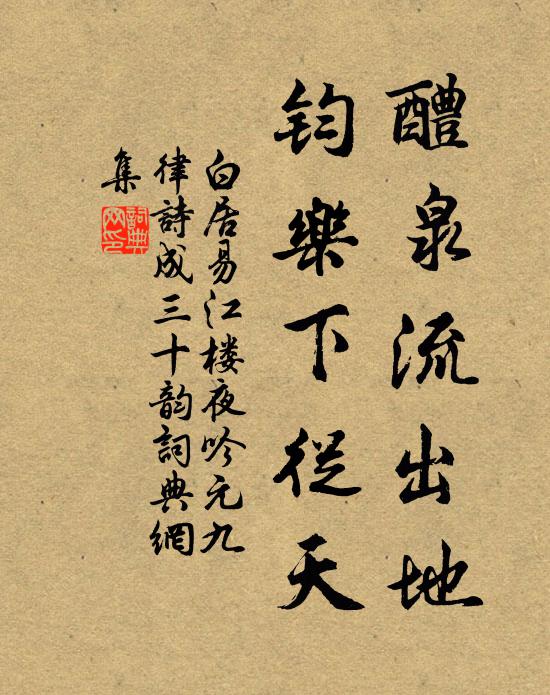 醴泉流出地
鈞樂下從天
白居易江楼夜吟元九
律詩成三十韵詞典網
集
詞典
网印